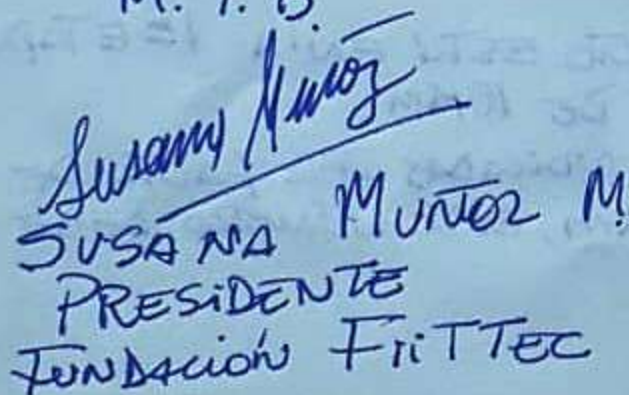 Susana Muñoz
SUSANA MUÑOZ M.
PRESIDENTE
FUNDACIÓN FiiTTEC